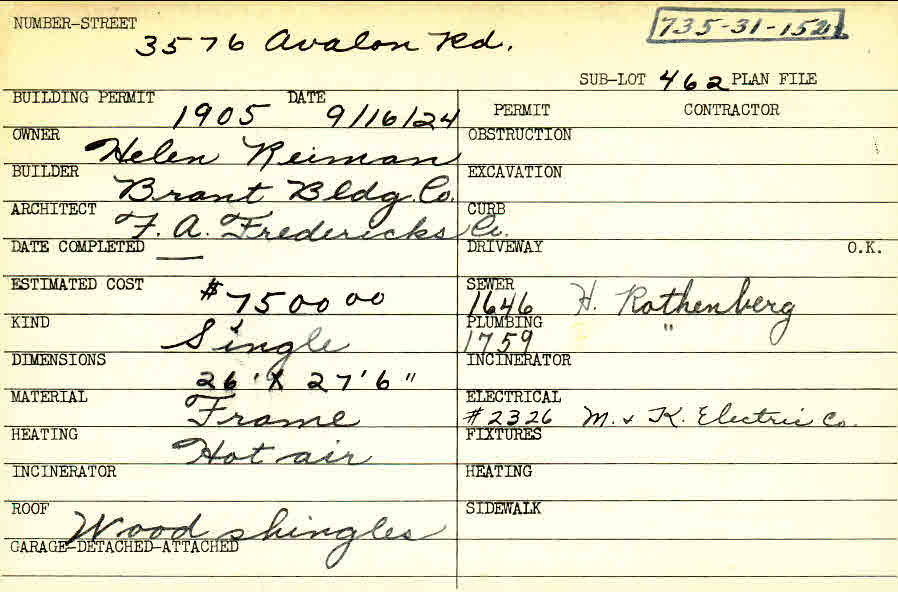 NUMBER-STREET
3576 Avalon Rd.
735-31-152
SUB-LOT 462 PLAN FILE
BUILDING PERMIT 1905 DATE 9/16/24
PERMIT CONTRACTOR
OWNER Helen Reiman
OBSTRUCTION
BUILDER Brant Bldg. Co.
EXCAVATION
ARCHITECT F. A. Fredericks Co.
CURB
DATE COMPLETED —
DRIVEWAY O.K.
ESTIMATED COST $7500 00
SEWER 1646 H. Rothenberg
KIND Single
PLUMBING 1759 "
DIMENSIONS 26' X 27'6"
INCINERATOR
MATERIAL Frame
ELECTRICAL #2326 M. & K. Electric Co.
HEATING Hot air
FIXTURES
INCINERATOR
HEATING
ROOF Wood shingles
SIDEWALK
GARAGE-DETACHED-ATTACHED